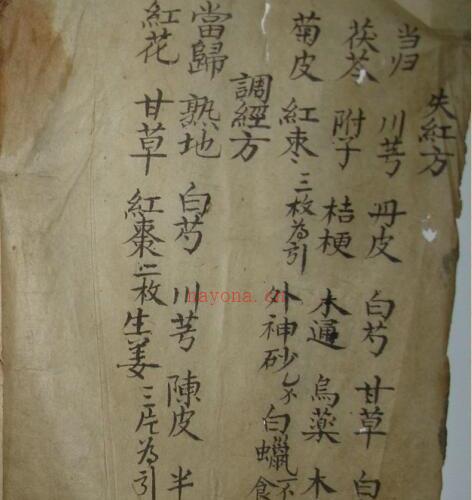 失紅方
当归 川芎 丹皮 白芍 甘草 白
茯苓 附子 桔梗 木通 烏藥 木
菊皮 紅枣三枚為引 外神砂 白蠟 不食
調經方
當歸 熟地 白芍 川芎 陳皮 半
紅花 甘草 紅棗二枚 生姜三片為引
nayona.cn